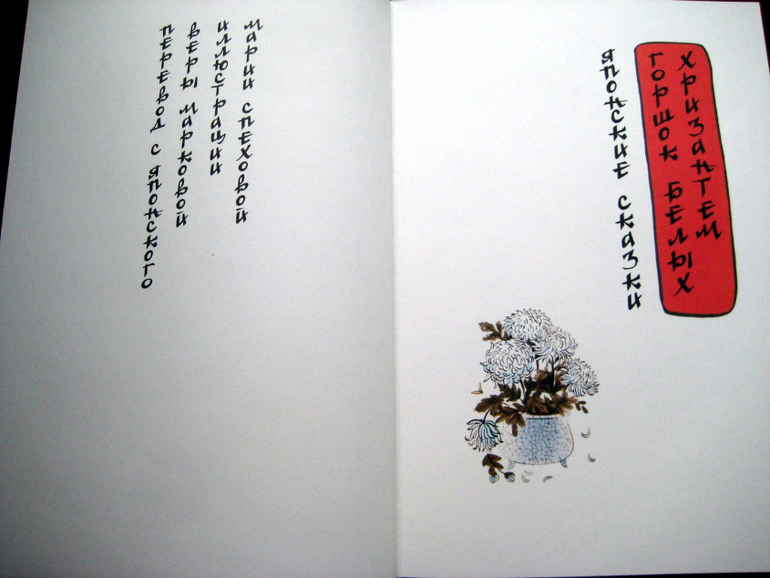 ПЕРЕВОД С ЯПОНСКОГО
ВЕРЫ МАРКОВОЙ
ИЛЛЮСТРАЦИИ
МАРИИ СПЕХОВОЙ
ЯПОНСКИЕ СКАЗКИ
ГОРШОК БЕЛЫХ
ХРИЗАНТЕМ